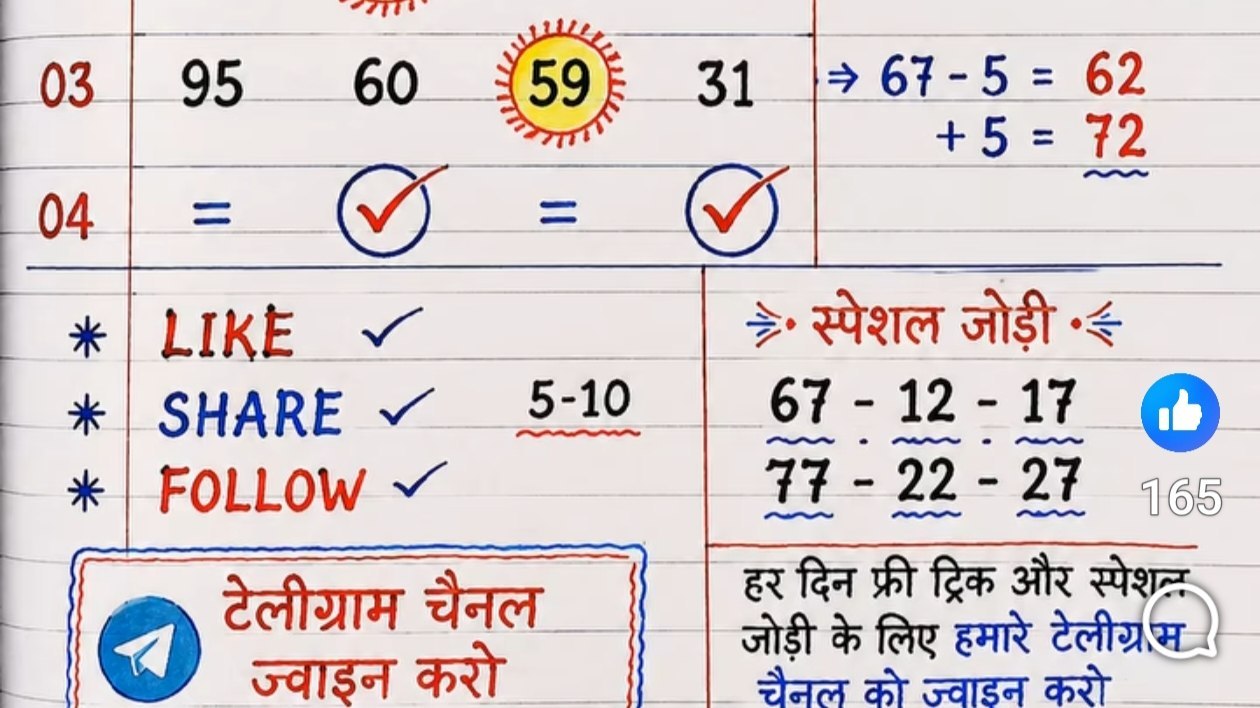 03 95 60 59 31 ⇒ 67 - 5 = 62
+ 5 = 72
04 = ✓ = ✓
* LIKE ✓
* SHARE ✓ 5-10
* FOLLOW ✓
•स्पेशल जोड़ी•
67 - 12 - 17
77 - 22 - 27
165
टेलीग्राम चैनल
ज्वाइन करो
हर दिन फ्री ट्रिक और स्पेशल
जोड़ी के लिए हमारे टेलीग्राम
चैनल को ज्वाइन करो